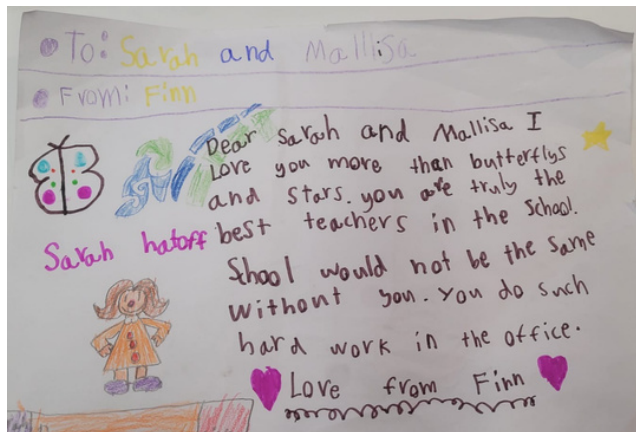 To: Sarah and Mallisa
From: Finn
Dear Sarah and Mallisa I
Love you more than butterflys
and stars. you are truly the
best teachers in the school.
School would not be the same
without you. You do such
hard work in the office.
Love from Finn
Sarah hatoff